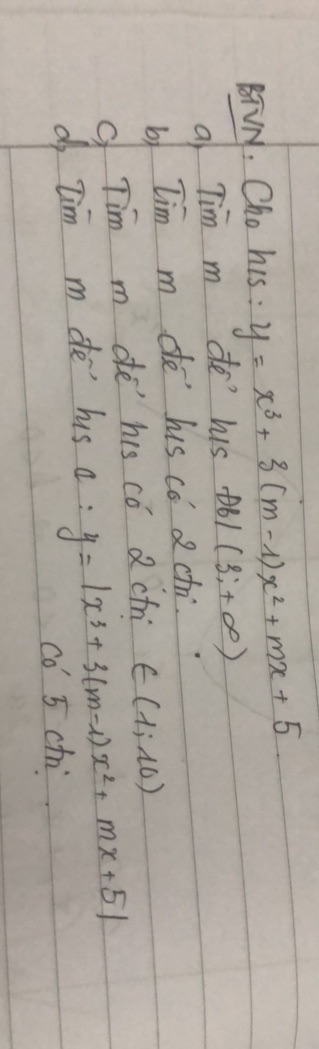 BTVN. Cho h/s: y = x³ + 3(m-1)x² + mx + 5
a, Tìm m để h/s Đb/(3;+∞)
b, Tìm m để h/s có 2 ctrị.
c, Tìm m để h/s có 2 ctrị ∈ (1;10)
d, Tìm m để h/s a: y = |x³ + 3(m-1)x² + mx + 5|
có 5 ctrị.